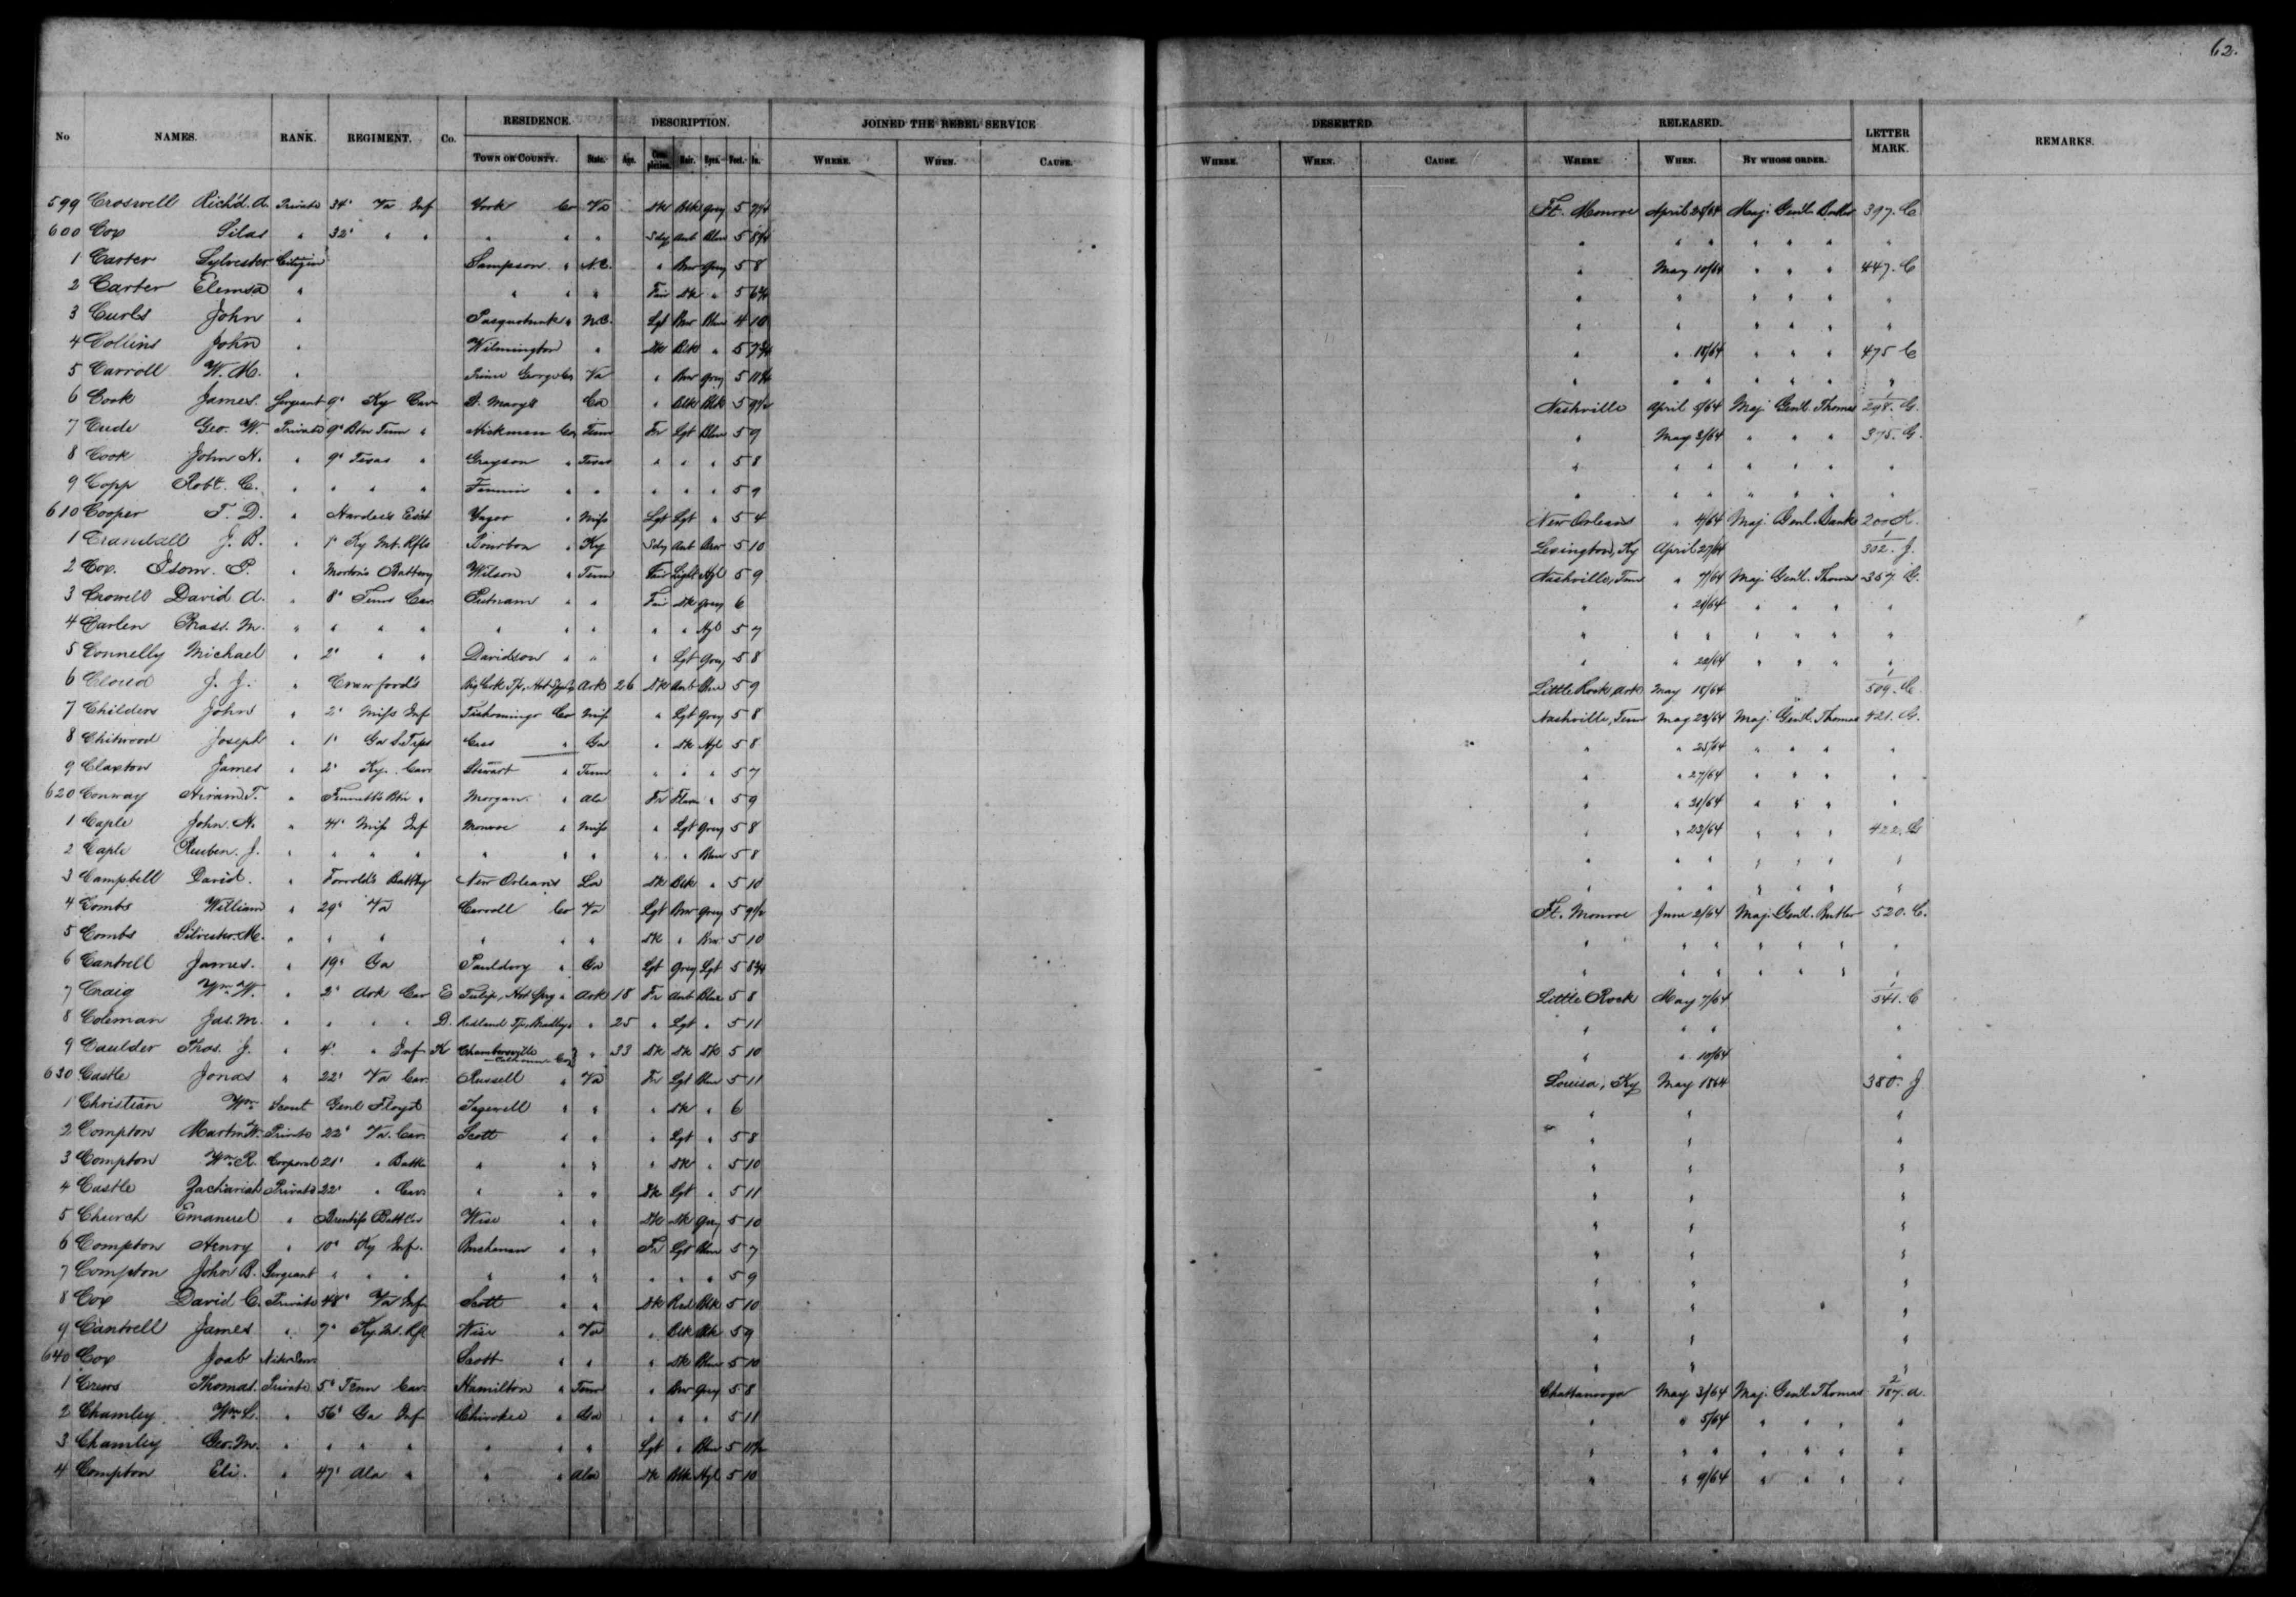 62.
No NAMES. RANK. REGIMENT. Co. RESIDENCE. DESCRIPTION. JOINED THE REBEL SERVICE DESERTED RELEASED. LETTER MARK. REMARKS.
TOWN OR COUNTY. State. Age. Complexion. Hair. Eyes. Feet. In. WHERE. WHEN. CAUSE. WHERE. WHEN. CAUSE. WHERE. WHEN. BY WHOSE ORDER.
599 Croswell Rich'd. A. Private 34' Va Inf York Co Va Dk Blk Grey 5 7¼ Ft. Monroe April 25/64 Maj. Genl. Butler 397. C
600 Cox Silas " 32' " " " " " Sdy Aub Blue 5 8¾ " " " " " " "
1 Carter Sylvester Citizen Sampson " N.C. " Brw Grey 5 8 " May 10/64 " " " 447. C
2 Carter Elemsa " " " " Fair Dk " 5 6¾ " " " " " "
3 Curls John " Pasquotank " N.C. Lgt Brw Blue 4 10 " " " " " "
4 Collins John " Wilmington " Dk Blk " 5 7¾ " " 18/64 " " " 475 C
5 Carroll W. M. " Prince George Co Va " Brw Grey 5 11¾ " " " " " " "
6 Cook James. Sergeant 9' Ky Cav St. Marys Ca " Blk Blk 5 9½ Nashville April 5/64 Maj Genl. Thomas 298. G.
7 Cude Geo. W. Private 9' Btn Tenn " Hickman Co Tenn Fr Lgt Blue 5 9 " May 3/64 " " " 375. G.
8 Cook John H. " 9' Texas " Grayson " Texas " " " 5 8 " " " " " " "
9 Copp Robt. C. " " " " Fannin " " " " " 5 9 " " " " " "
610 Cooper T. D. " Hardee's Esc't Yazoo " Miss Lgt Lgt " 5 4 New Orleans " 4/64 Maj. Genl. Banks 200 K.
1 Crandall J. B. " 1' Ky Mt. Rfls Bourbon " Ky Sdy Aub Brw 5 10 Lexington, Ky April 27/64 1/302. J.
2 Cox. Isom. P. " Morton's Battery Wilson " Tenn Fair Light Hzl 5 9 Nashville, Tenn " 7/64 Maj Genl. Thomas 357. G.
3 Crowell David A. " 8' Tenn Cav Putnam " " Fair Dk Grey 6 " " 21/64 " " " "
4 Carlen Chas. M. " " " " " " " " " Hzl 5 7 " " " " " " "
5 Connelly Michael " 2' " " Davidson " " " Lgt Grey 5 8 " " 22/64 " " " "
6 Cloud J. J. " Crawford's Ark 26 Dk Aub Blue 5 9 Little Rock, Ark May 18/64 1/509. C.
7 Childers John " 2' Miss Inf Tishomingo Co Miss " Lgt Grey 5 8 Nashville, Tenn May 23/64 Maj. Genl. Thomas 421. G.
8 Chitwood Joseph " 1' Ga S. Trps Cass " Ga " Dk Hzl 5 8 " " 25/64 " " " "
9 Claxton James " 2' Ky. Cav Stewart " Tenn " " " 5 7 " " 27/64 " " " "
620 Conway Hiram T. " Btn " Morgan. " Ala Fr Flaxn " 5 9 " " 31/64 " " " "
1 Caple John. H. " 41' Miss Inf Monroe " Miss " Lgt Grey 5 8 " " 23/64 " " " 422. G
2 Caple Reuben. J. " " " " " " " " " Blue 5 8 " " " " " " "
3 Campbell David. " Batt'ry New Orleans La Dk Blk " 5 10 " " " " " " "
4 Combs William " 29' Va Carroll Co Va Lgt Brw Grey 5 9½ Ft. Monroe June 2/64 Maj. Genl. Butler 520. C.
5 Combs Silvester. M. " " " " " " Dk " Brw 5 10 " " " " " " "
6 Cantrell James. " 19' Ga Paulding " Ga Lgt Grey Lgt 5 8¾ " " " " " "
7 Craig Wm. W. " 2' Ark Cav E Tulip, Hot Spg " Ark 18 Fr Aub Blue 5 8 Little Rock May 7/64 1/541. C
8 Coleman Jas. M. " " " " D. Redland Tp, Bradley " " 25 " Lgt " 5 11 " " " "
9 Caulder Thos. J. " 4' " Inf K Chambersville Calhoun Co " 33 Dk Dk Dk 5 10 " " 10/64 "
630 Castle Jonas " 22' Va Cav. Russell " Va Fr Lgt Blue 5 11 Louisa, Ky May 1864 380. J
1 Christian Wm. Scout Genl Floyd Tazewell " " " Dk " 6 " " "
2 Compton Martin W. Private 22' Va. Cav. Scott " " " Lgt " 5 8 " " "
3 Compton Wm. R. Corporal 21' " Battn " " " " Dk " 5 10 " " "
4 Castle Zachariah Private 22' " Cav. " " " Dk Lgt " 5 11 " " "
5 Church Emanuel " Prentiss Batt'ln Wise " " Dk Dk Grey 5 10 " " "
6 Compton Henry " 10' Ky Inf. Buchanan " " Fr Lgt Blue 5 7 " " "
7 Compton John B. Sergeant " " " " " " " " " 5 9 " " "
8 Cox David C. Private 48' Va Inf Scott " " Dk Red Blk 5 10 " " "
9 Cantrell James " 7' Ky Mt. Rfl Wise " Va " Blk Blk 5 9 " " "
640 Cox Joab Scott " " " Dk Blue 5 10 " " "
1 Crews Thomas. Private 5' Tenn Cav. Hamilton " Tenn " Brw Grey 5 8 Chattanooga May 3/64 Maj. Genl. Thomas 2/187. A.
2 Chamley Wm. L. " 56' Ga Inf Cherokee " Ga " " " 5 11 " " 5/64 " " " "
3 Chamley Geo. M. " " " " " " " Lgt " Blue 5 11½ " " " " " " "
4 Compton Eli. " 47' Ala " " " Ala Dk Blk Hzl 5 10 " " 9/64 " " " "